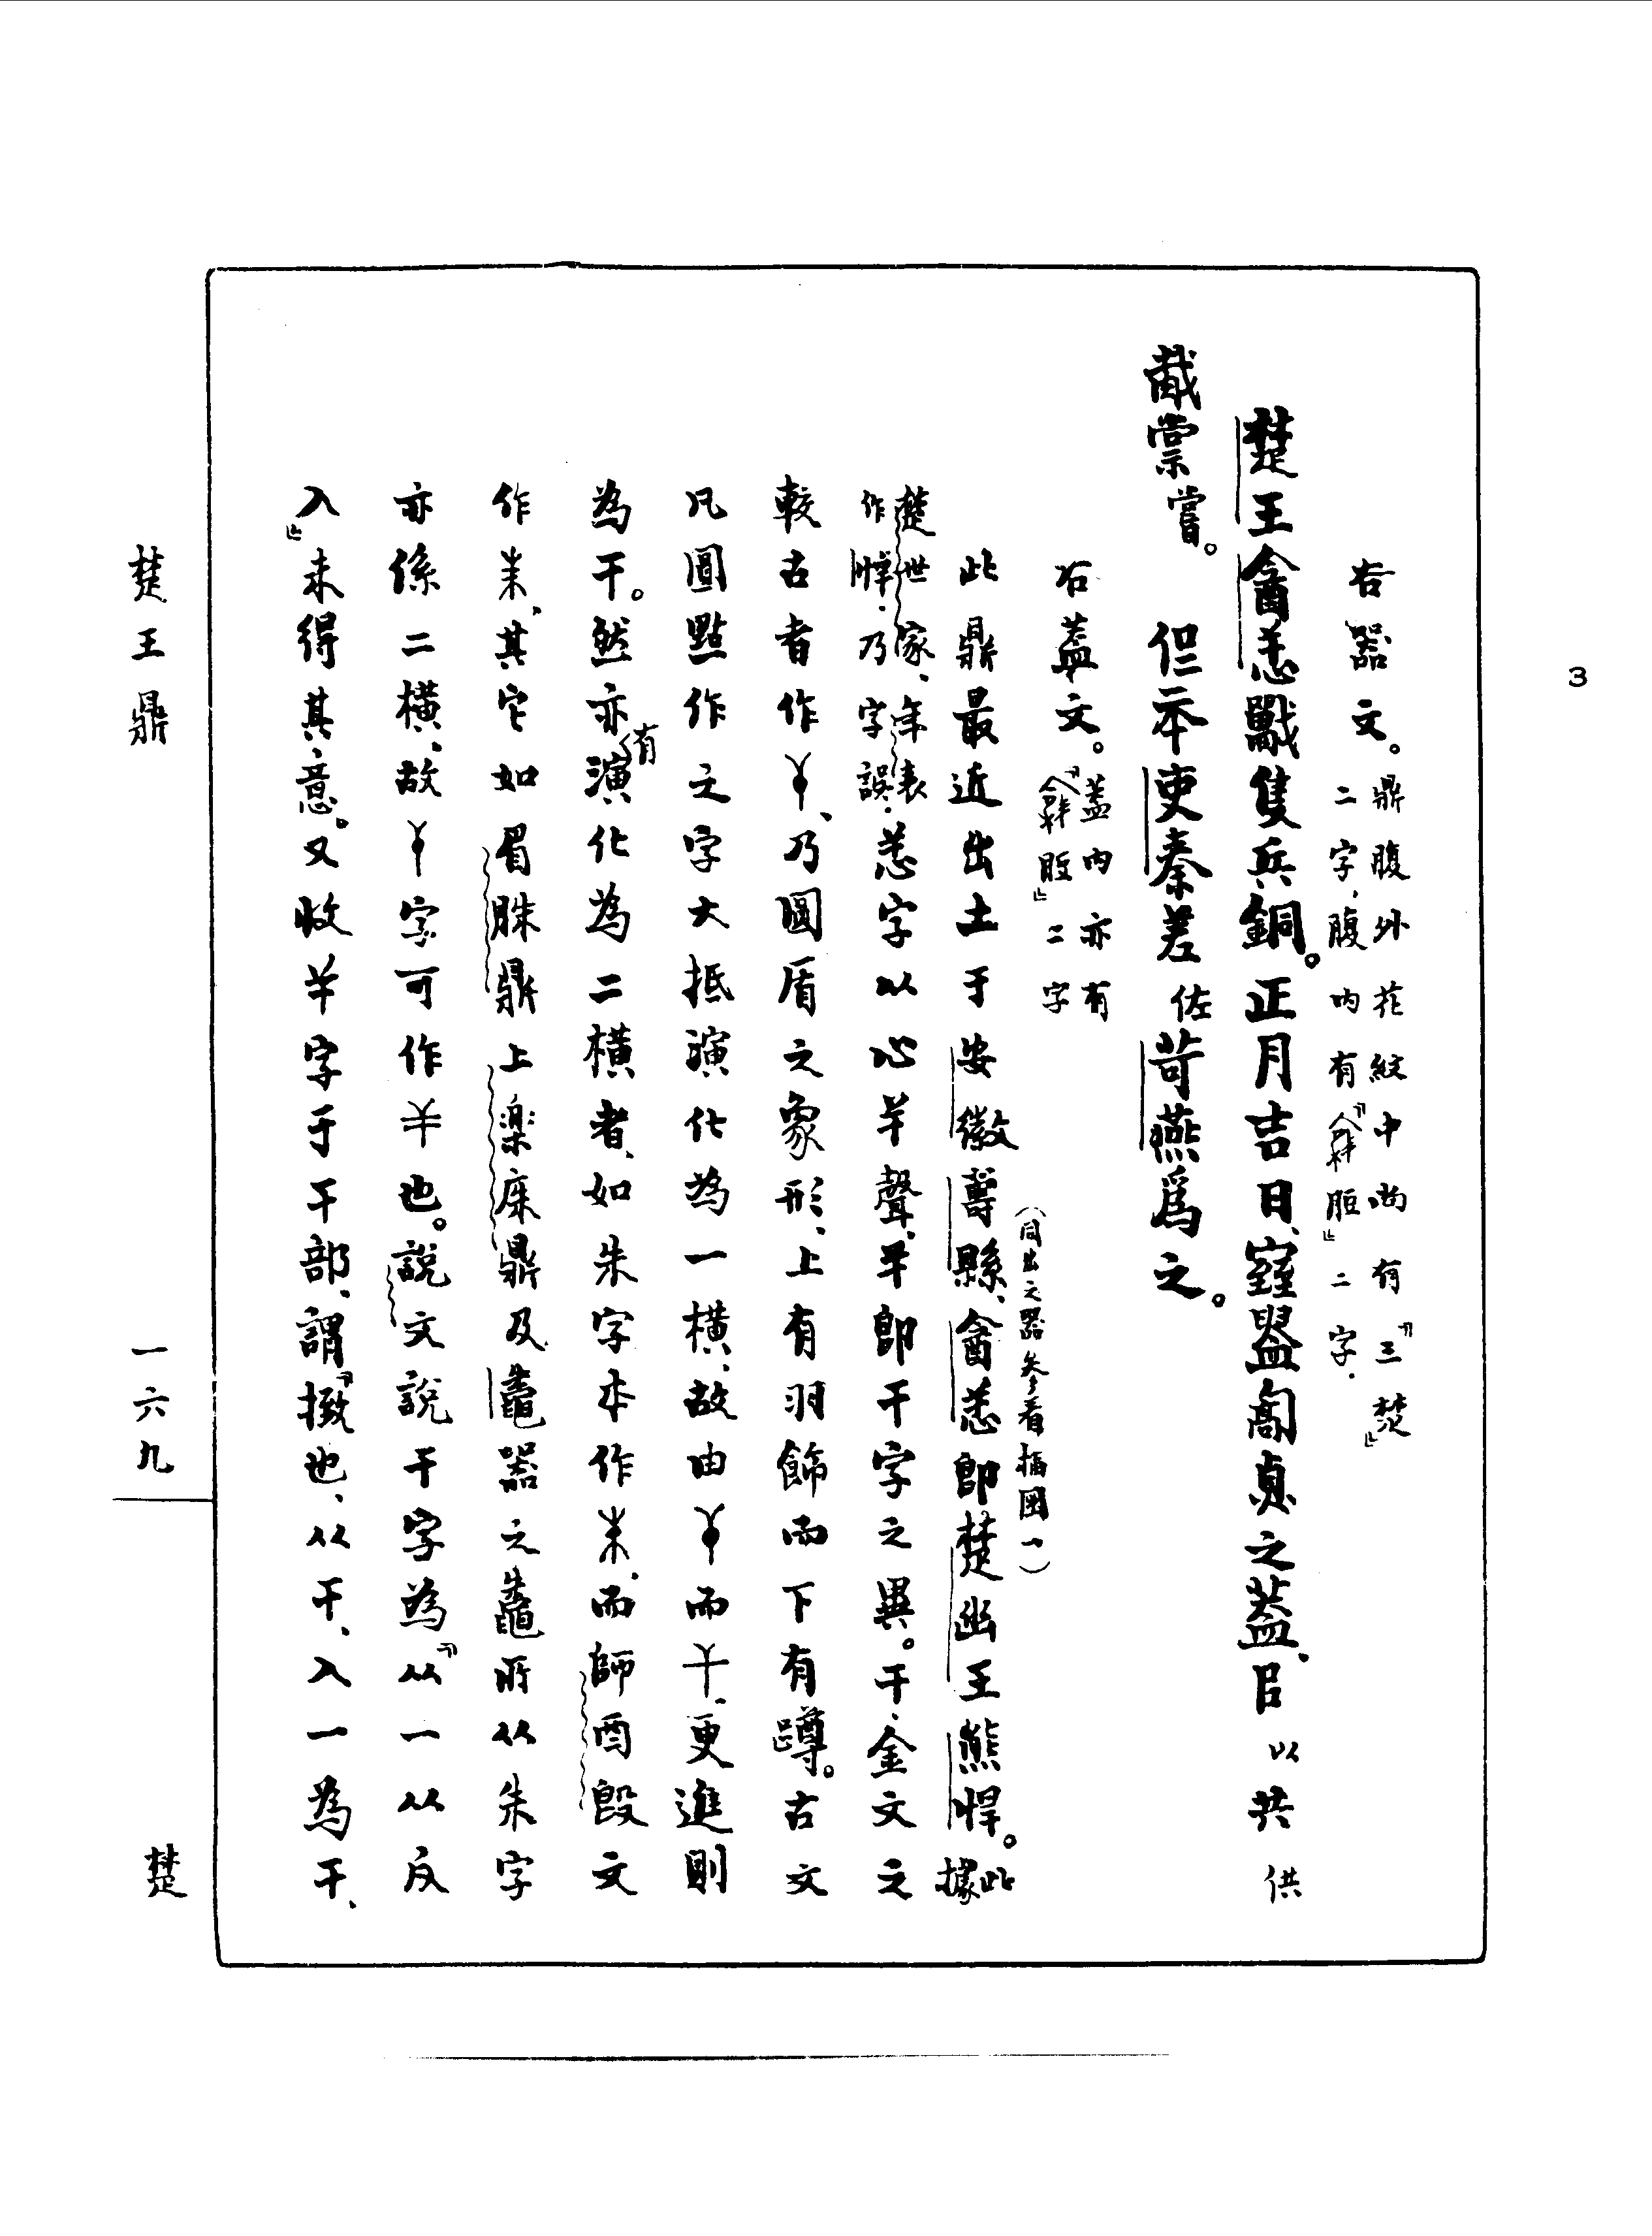 右器文。鼎腹外花紋中尚有「三楚」
二字，腹内有「胆」二字．
楚王酓忎戰隻兵銅。正月吉日、窒盥喬貞之蓋、㠯以共供
胾棠嘗。但𠦪吏秦差佐苛燕爲之。
右蓋文。「蓋内亦有
脰」二字
（同出之器參看插圖一）
此鼎最近出土于安徽壽縣、酓忎即楚幽王熊悍。此據
楚世家、年表
作悼．乃字誤．忎字以心羊聲、羊即干字之異。干、金文之
較古者作丫、乃圓盾之象形、上有羽飾而下有蹲。古文
凡圓點作之字大抵演化為一橫、故由丫而丫、更進則
為干。然亦有演化為二橫者、如朱字本作朱、而師酉𣪘文
作朱、其它如眉脒鼎上樂床鼎及鼄器之鼄所从朱字
亦係二橫、故丫字可作羊也。說文說干字為「从一从反
入」未得其意。又收羊字于干部、謂「撥也、从干、入一為干、
楚王鼎
一六九
楚
3